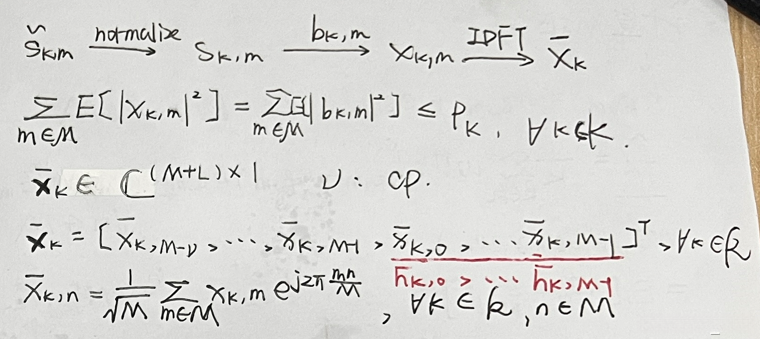 š_{k,m} —normalize→ s_{k,m} —b_{k,m}→ x_{k,m} —IDFT→ x̄_k
∑_{m∈M} E[|x_{k,m}|²] = ∑_{m∈M} E[|b_{k,m}|²] ≤ P_k, ∀k∈K.
x̄_k ∈ ℂ^{(M+L)×1} ν: CP.
x̄_k = [x̄_{k,M-ν}, ⋯, x̄_{k,M-1}, x̄_{k,0}, ⋯ x̄_{k,M-1}]^T, ∀k∈K
h̄_{k,0}, ⋯ h̄_{k,M-1}
x̄_{k,n} = 1/√M ∑_{m∈M} x_{k,m} e^{j2π mn/M}, ∀k∈K, n∈M